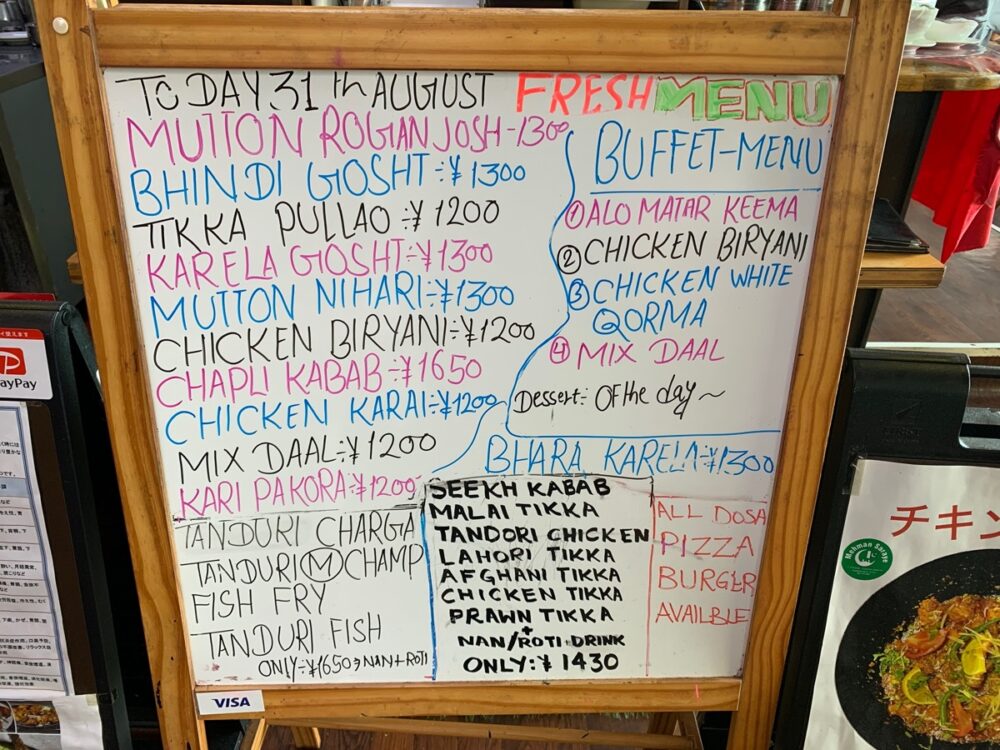 TODAY 31th AUGUST FRESH MENU
MUTTON ROGAN JOSH-1300
BHINDI GOSHT:-¥1300
TIKKA PULLAO:-¥1200
KARELA GOSHT:-¥1300
MUTTON NIHARI:-¥1300
CHICKEN BIRYANI:-¥1200
CHAPLI KABAB:-¥1650
CHICKEN KARAI:-¥1200
MIX DAAL:-¥1200
KARI PAKORA:-¥1200
BUFFET-MENU
① ALO MATAR KEEMA
② CHICKEN BIRYANI
③ CHICKEN WHITE
QORMA
④ MIX DAAL
Dessert:- Of the day~
BHARA KARELA:-¥1300
TANDURI CHARGA
TANDURI Ⓜ CHAMP
FISH FRY
TANDURI FISH
ONLY:-¥1650 → NAN+ROTI
SEEKH KABAB
MALAI TIKKA
TANDORI CHICKEN
LAHORI TIKKA
AFGHANI TIKKA
CHICKEN TIKKA
PRAWN TIKKA
+
NAN/ROTI+DRINK
ONLY:¥ 1430
ALL DOSA
PIZZA
BURGER
AVAILBLE
VISA
ayPay
チキン
Mehman Saraye